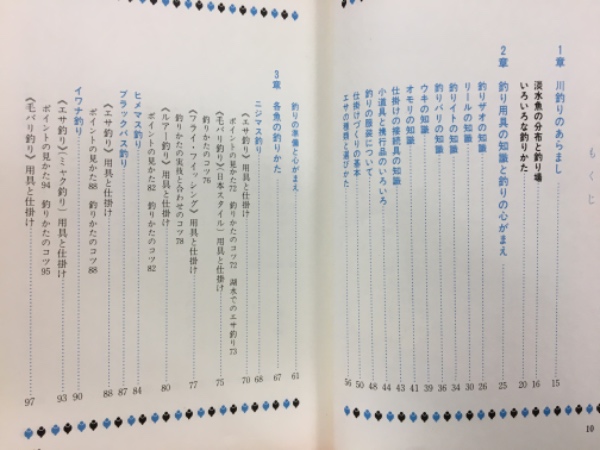 もくじ
1章 川釣りのあらまし 15
淡水魚の分布と釣り場 16
いろいろな釣りかた 20
2章 釣り用具の知識と釣りの心がまえ 25
釣りザオの知識 26
リールの知識 30
釣りイトの知識 34
釣りバリの知識 36
ウキの知識 39
オモリの知識 41
仕掛けの接続具の知識 43
小道具と携行品のいろいろ 44
釣りの服装について 48
仕掛けづくりの基本 50
エサの種類と選びかた 56
10
釣りの準備と心がまえ 61
3章 各魚の釣りかた 67
ニジマス釣り 68
《エサ釣り》用具と仕掛け 70
ポイントの見かた72 釣りかたのコツ72 湖水でのエサ釣り73
《毛バリ釣り》〔日本スタイル〕用具と仕掛け 75
釣りかたのコツ76
《フライ・フィッシング》用具と仕掛け 77
釣りかたの実技と合わせのコツ78
《ルアー釣り》用具と仕掛け 80
ポイントの見かた82 釣りかたのコツ82
ヒメマス釣り 84
ブラックバス釣り 87
《エサ釣り》用具と仕掛け 88
ポイントの見かた88 釣りかたのコツ88
イワナ釣り 90
《エサ釣り》〔ミャク釣り〕用具と仕掛け 93
ポイントの見かた94 釣りかたのコツ95
《毛バリ釣り》用具と仕掛け 97